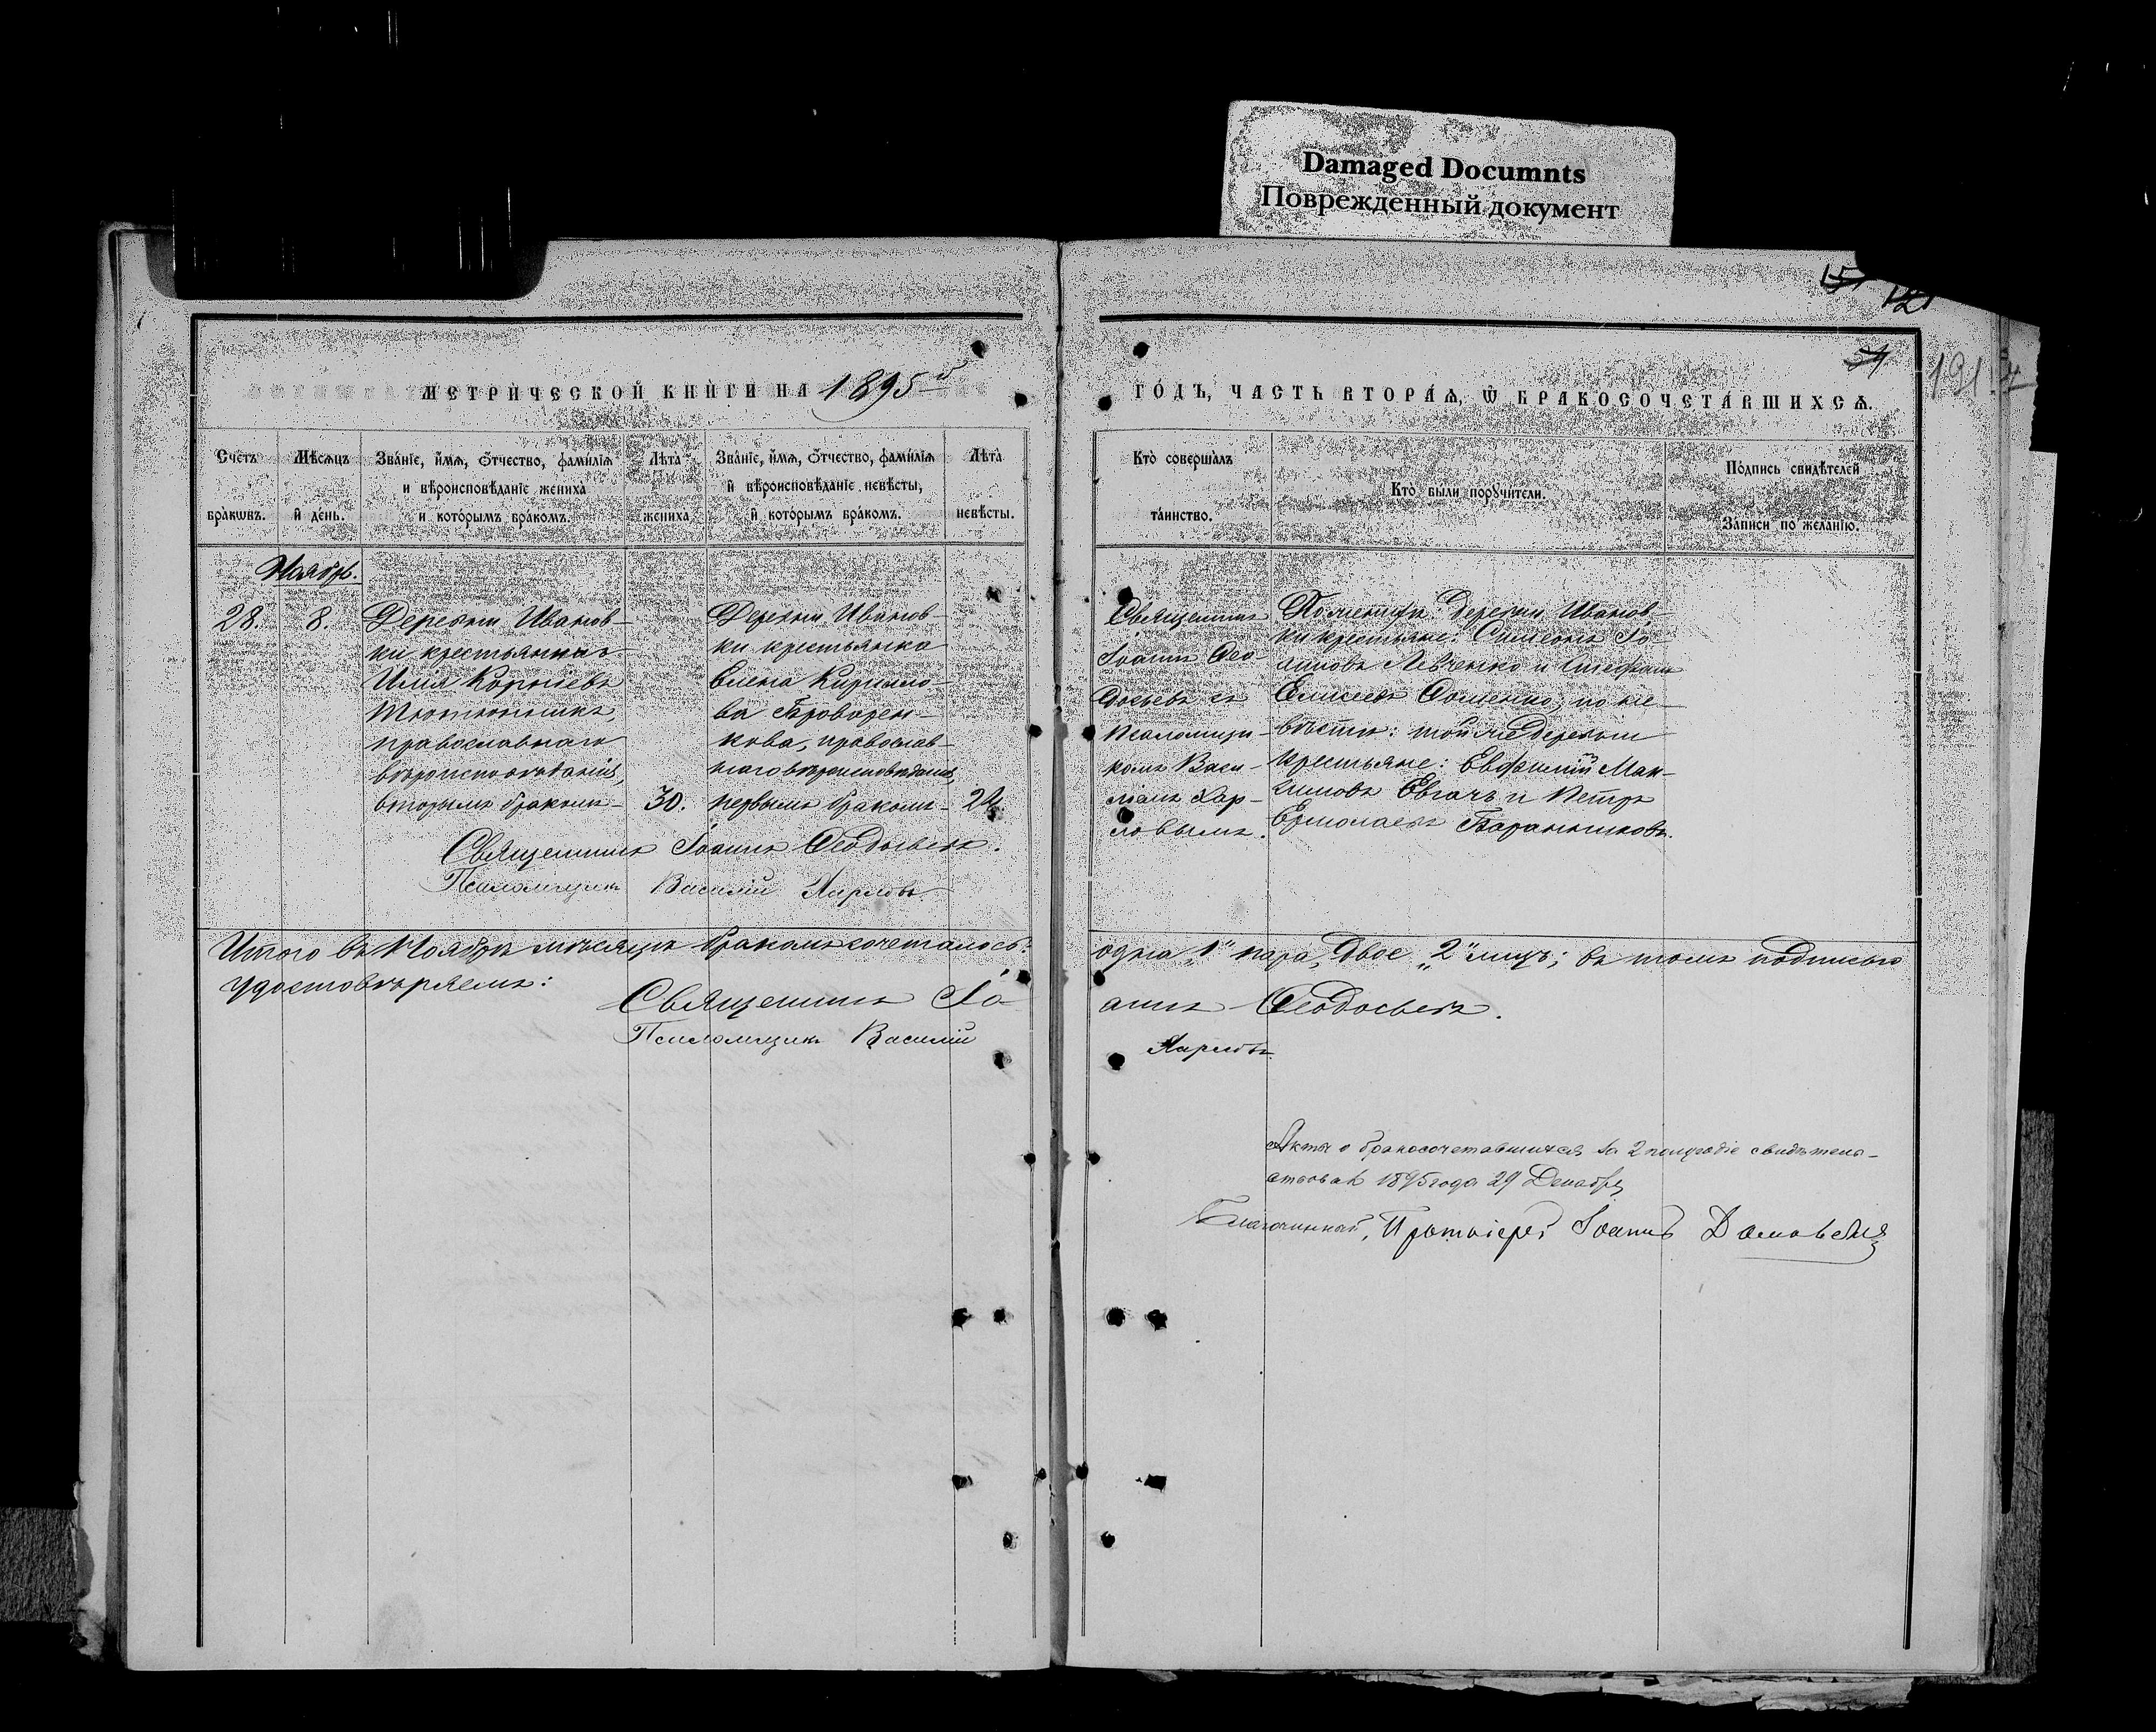 Damaged Documnts
Поврежденный документ
15
121
191
МЕТРИЧЕСКОЙ КНИГИ НА 1895й
ГОДЪ, ЧАСТЬ ВТОРАѦ, Ѡ БРАКОСОЧЕТАВШИХСѦ.
Счетъ браковъ.
Мѣсѧцъ и день.
Званіе, имѧ, отчество, фамиліѧ
и вѣроисповѣданіе жениха
и которымъ бракомъ.
Лѣта жениха
Званіе, имѧ, отчество, фамиліѧ
и вѣроисповѣданіе невѣсты,
и которымъ бракомъ.
Лѣта невѣсты.
Кто совершалъ
таинство.
Кто были поручители.
Подпись свидѣтелей
записи по желанію.
Ноябрь.
28.
8.
Деревни Иванов-
ки крестьянинъ
Илия Корніевъ
Тютюнникъ,
православнаго
вѣроисповѣданія,
вторымъ бракомъ
30.
Деревни Иванов-
ки крестьянка
Елена Кирило-
ва Броворен-
кова, православ-
наго вѣроисповѣданія,
первымъ бракомъ
24.
Священникъ
Іоаннъ Ѳео-
досьевъ съ
псаломщи-
комъ Васи-
ліемъ Кар-
повымъ.
По женихѣ: деревни Иванов-
ки крестьяне: Симеонъ Іо-
анновъ Левченко и Стефанъ
Елисеевъ Ѳоменко; по не-
вѣстѣ: той же деревни
крестьяне: Евфимій Мак-
симовъ Евгачъ и Петръ
Ермолаевъ Баранниковъ.
Священникъ Іоаннъ Ѳеодосьевъ.
Псаломщикъ Василій Карповъ
Итого въ Ноябрѣ мѣсяцѣ бракомъ сочеталось: одна „1" пара, двое „2" лицъ; въ томъ подписью
удостовѣряемъ:
Священникъ Іоаннъ Ѳеодосьевъ.
Псаломщикъ Василій Карповъ
Акты о бракосочетавшихся за 2 полугодіе свидѣтель-
ствовалъ 1895 года 29 Декабря
Благочинный, Протоіерей Іоаннъ